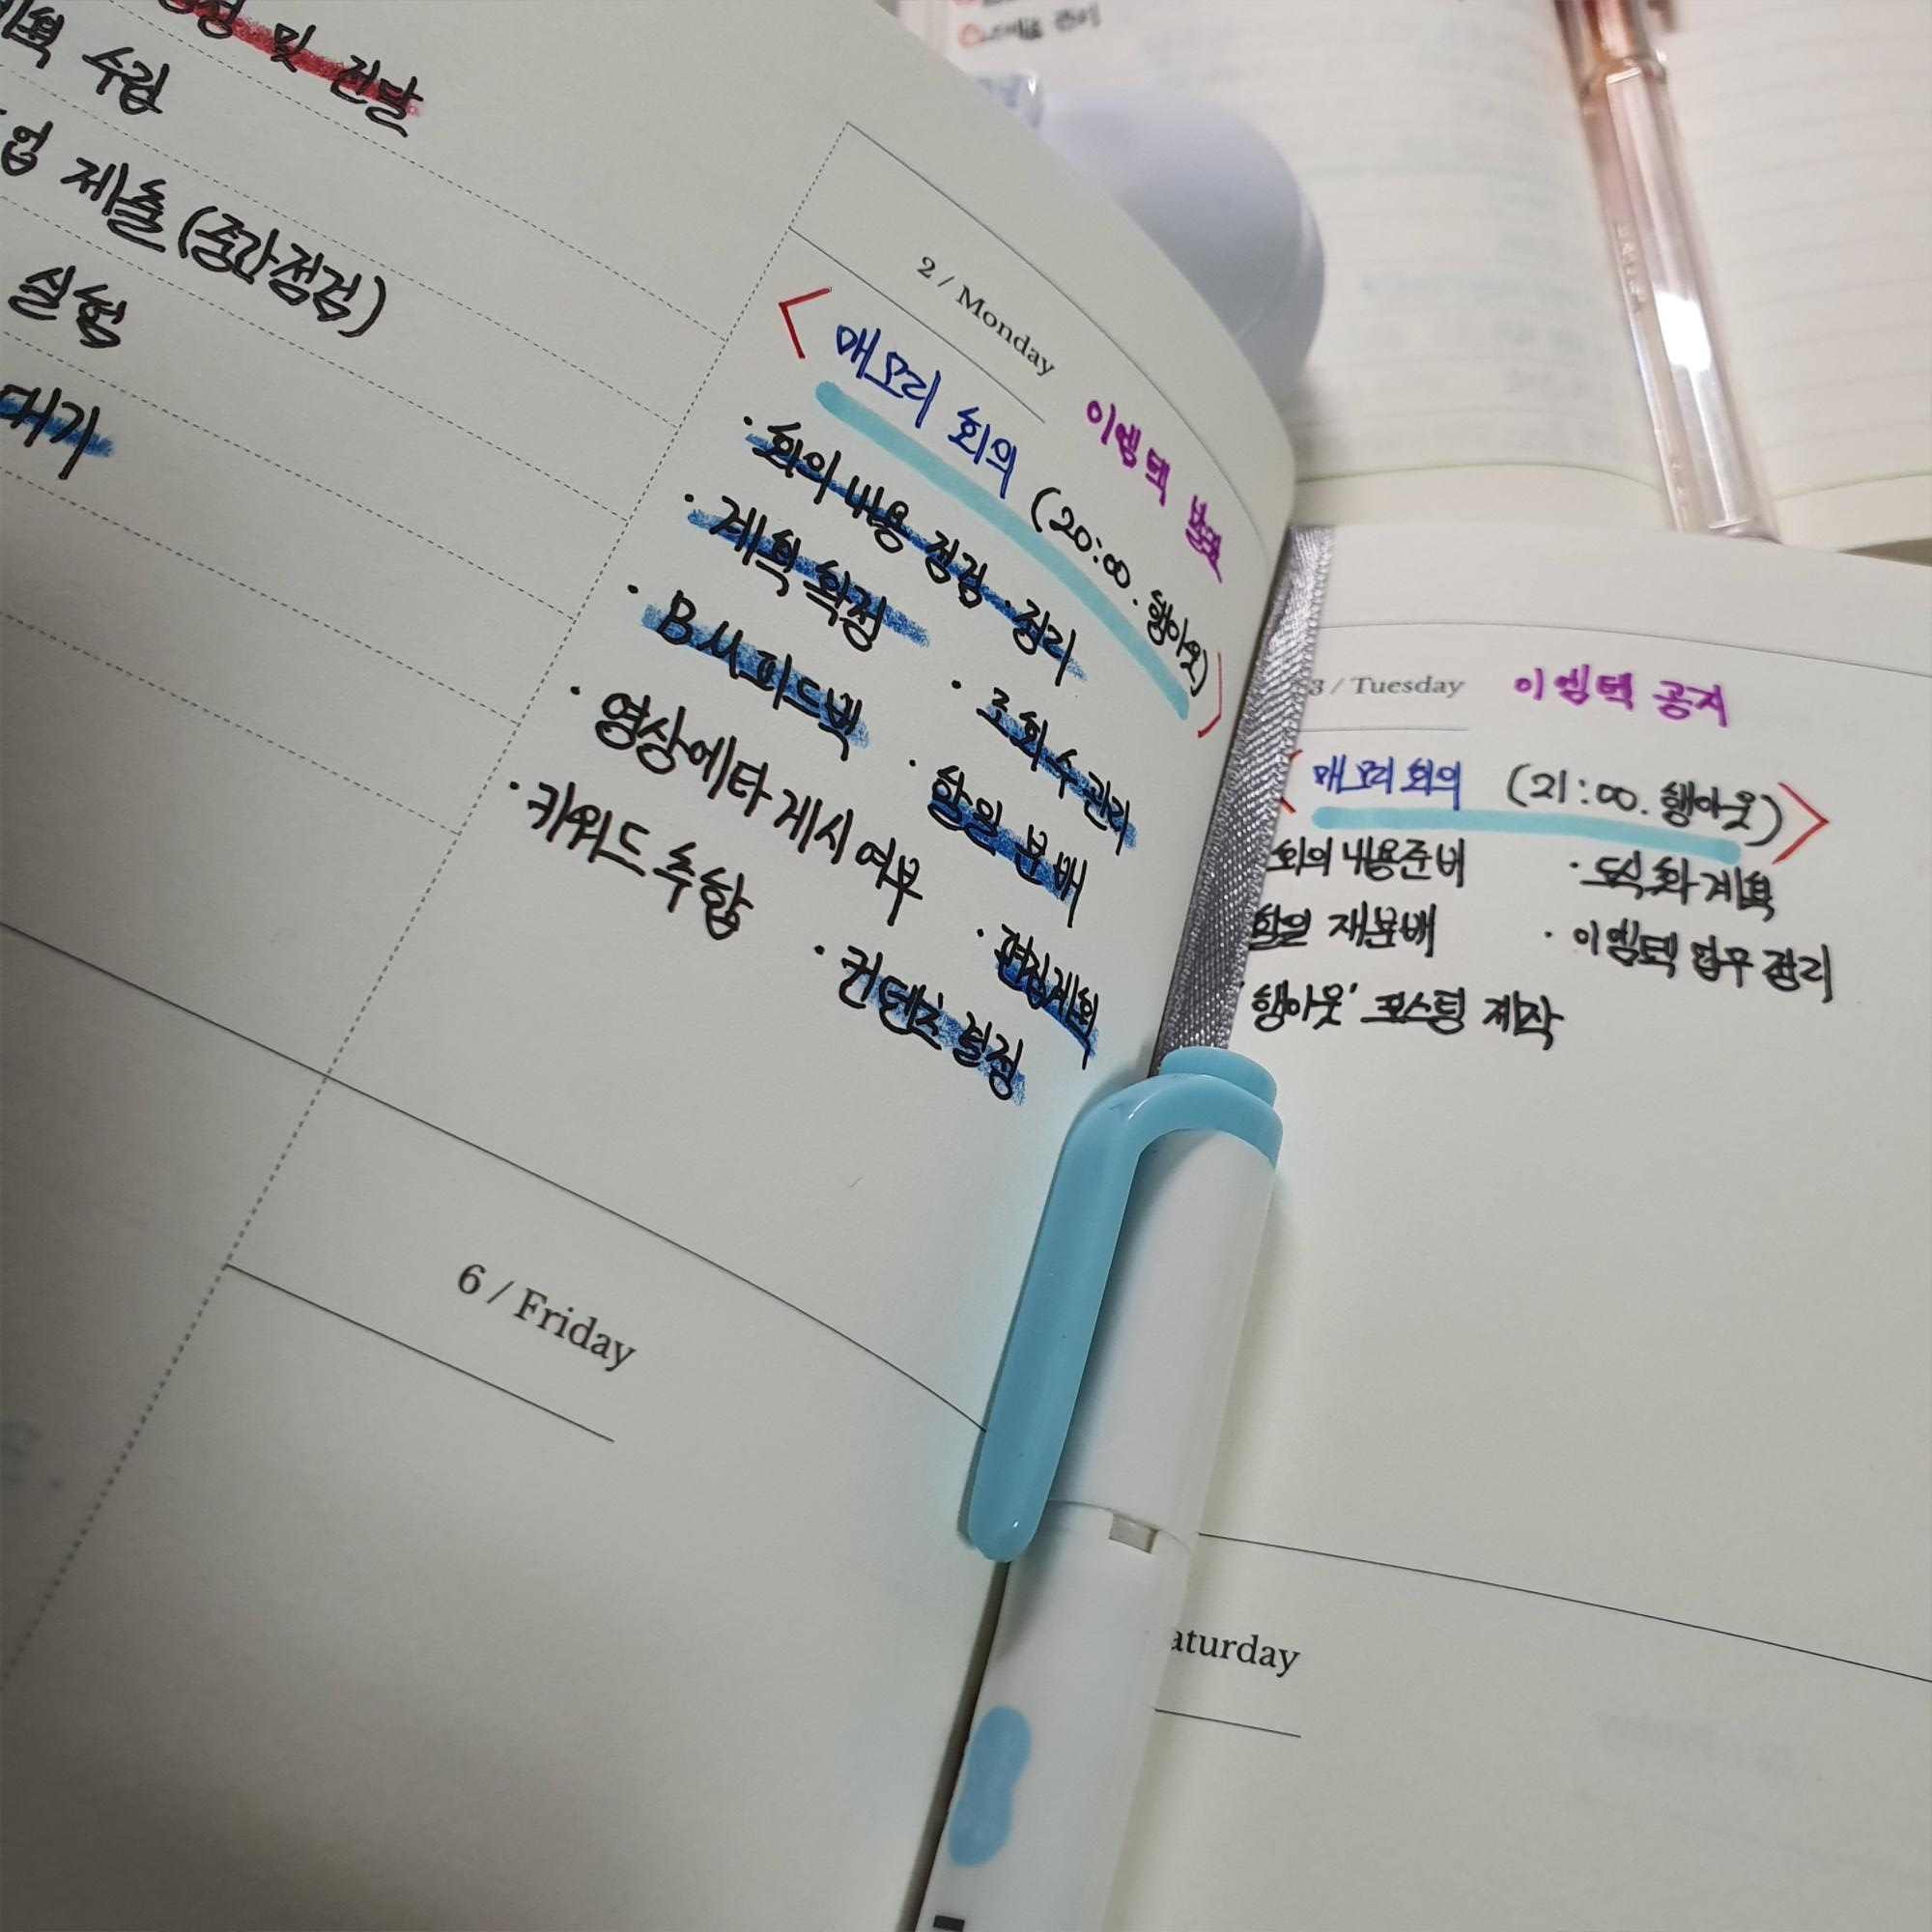 및 전달
수립
업 제출 (중간점검)
실험
대기
2 / Monday
이엠텍 발표
매모리 회의 (20:00. 행아웃)
· 회의 내용 점검 · 정리
· 계획 확정
· 조회수 관리
· B사 피드백
· 할일 분배
· 영상 에타 게시 여부
· 편집계획
· 키워드 추합
· 컨텐츠 선정
6 / Friday
3 / Tuesday
이엠텍 공지
매모리 회의 (21:00. 행아웃)
회의 내용준비
· 도식화 계획
할일 재분배
· 이엠텍 업무 정리
'행아웃' 포스팅 제작
aturday